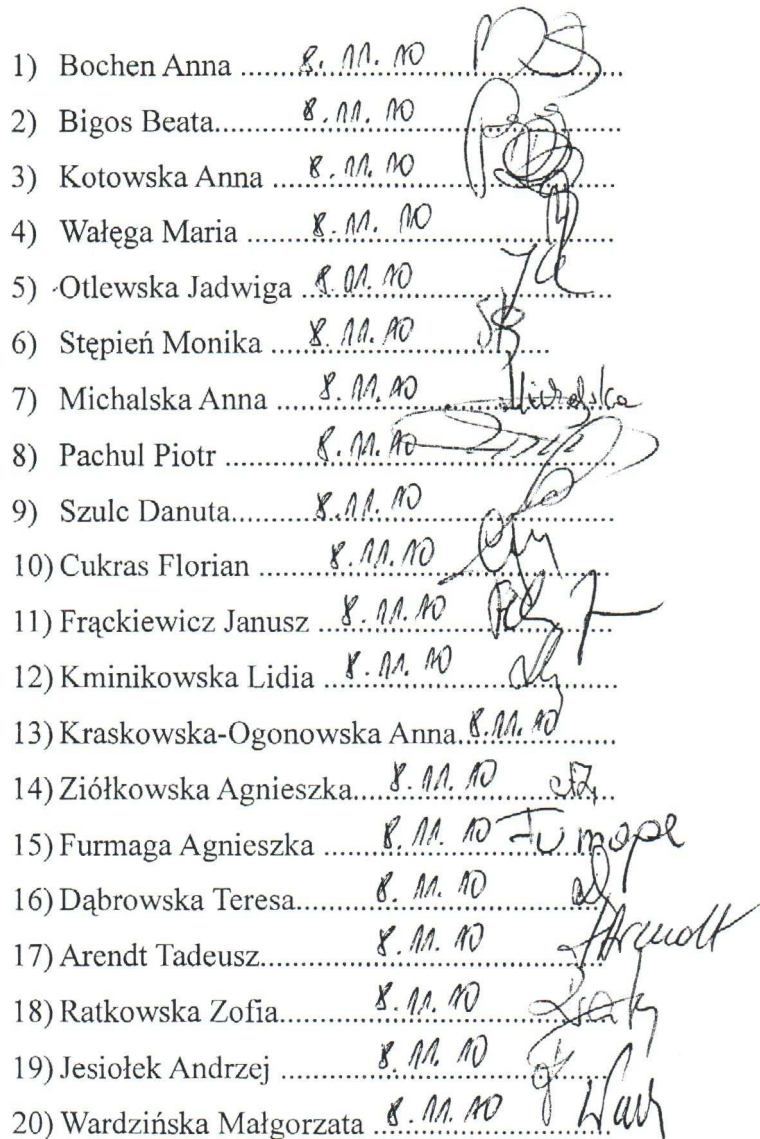 1) Bochen Anna ........8. 11. 10..........................
2) Bigos Beata............8. 11. 10..........................
3) Kotowska Anna .......8. 11. 10..........................
4) Wałęga Maria ..........8. 11. 10..........................
5) Otlewska Jadwiga ...8. 01. 10..........................
6) Stępień Monika .......8. 11. 10..................
7) Michalska Anna .......8. 11. 10............Michalska
8) Pachul Piotr .............8. 11. 10..........................
9) Szulc Danuta............8. 11. 10..........................
10) Cukras Florian .........8. 11. 10..........................
11) Frąckiewicz Janusz ...8. 11. 10..........................
12) Kminikowska Lidia ....8. 11. 10..........................
13) Kraskowska-Ogonowska Anna..8. 11. 10........
14) Ziółkowska Agnieszka.....8. 11. 10....................
15) Furmaga Agnieszka ........8. 11. 10 Furmaga
16) Dąbrowska Teresa..........8. 11. 10....................
17) Arendt Tadeusz..............8. 11. 10............Arendt
18) Ratkowska Zofia.............8. 11. 10....................
19) Jesiołek Andrzej ............8. 11. 10....................
20) Wardzińska Małgorzata ..8. 11. 10....................